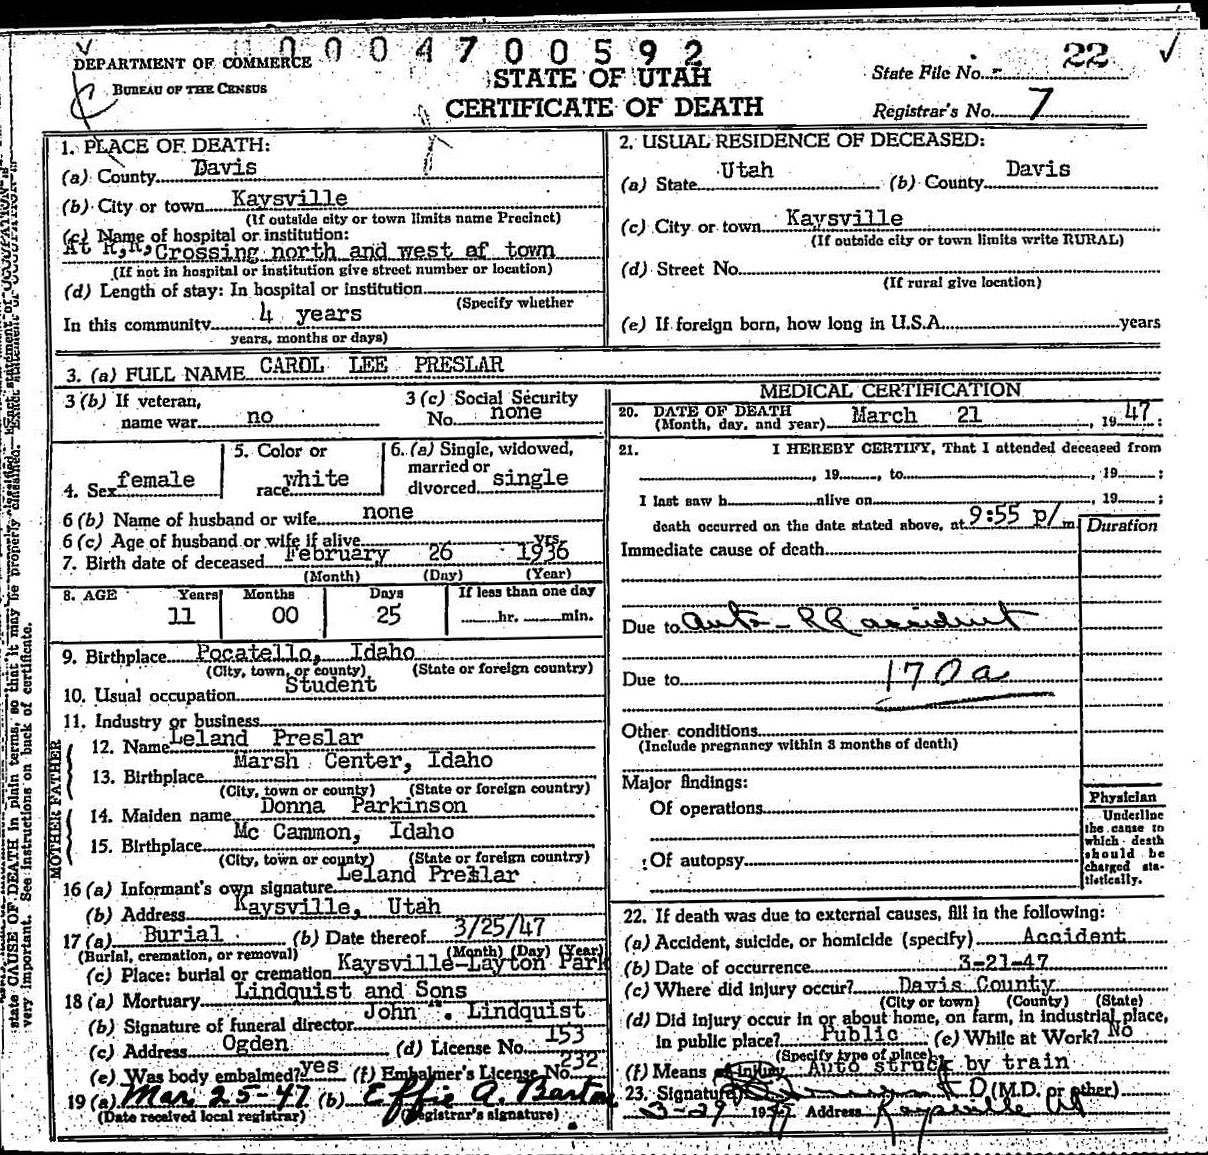 0004700592
DEPARTMENT OF COMMERCE
BUREAU OF THE CENSUS
STATE OF UTAH
CERTIFICATE OF DEATH
State File No. 22
Registrar's No. 7
1. PLACE OF DEATH:
(a) County Davis
(b) City or town Kaysville
(If outside city or town limits name Precinct)
(c) Name of hospital or institution:
At R,R, Crossing north and west af town
(If not in hospital or institution give street number or location)
(d) Length of stay: In hospital or institution
(Specify whether
In this community 4 years
years, months or days)
2. USUAL RESIDENCE OF DECEASED:
(a) State Utah (b) County Davis
(c) City or town Kaysville
(If outside city or town limits write RURAL)
(d) Street No.
(If rural give location)
(e) If foreign born, how long in U.S.A. years
3. (a) FULL NAME CAROL LEE PRESLAR
3 (b) If veteran,
name war no
3 (c) Social Security
No. none
4. Sex female
5. Color or
race white
6. (a) Single, widowed,
married or
divorced single
6 (b) Name of husband or wife none
6 (c) Age of husband or wife if alive yrs.
7. Birth date of deceased February 26 1936
(Month) (Day) (Year)
8. AGE Years Months Days If less than one day
11 00 25 hr. min.
9. Birthplace Pocatello, Idaho
(City, town, or county) (State or foreign country)
10. Usual occupation Student
11. Industry or business
FATHER
12. Name Leland Preslar
13. Birthplace Marsh Center, Idaho
(City, town or county) (State or foreign country)
MOTHER
14. Maiden name Donna Parkinson
15. Birthplace Mc Cammon, Idaho
(City, town or county) (State or foreign country)
16 (a) Informant's own signature Leland Preslar
(b) Address Kaysville, Utah
17 (a) Burial (b) Date thereof 3/25/47
(Burial, cremation, or removal) (Month) (Day) (Year)
(c) Place: burial or cremation Kaysville-Layton Park
18 (a) Mortuary Lindquist and Sons
(b) Signature of funeral director John . Lindquist
(c) Address Ogden (d) License No. 153
(e) Was body embalmed? yes (f) Embalmer's License No. 232
19 (a) Mar 25-47 (b) Effie A. Barton
(Date received local registrar) (Registrar's signature)
MEDICAL CERTIFICATION
20. DATE OF DEATH
(Month, day, and year) March 21, 1947
21. I HEREBY CERTIFY, That I attended deceased from
, 19 , to , 19 ;
I last saw h alive on , 19 ;
death occurred on the date stated above, at 9:55 p/ m
Duration
Immediate cause of death
Due to Auto - RR accident
Due to 170a
Other conditions
(Include pregnancy within 3 months of death)
Major findings:
Of operations
Of autopsy
Physician
Underline
the cause to
which death
should be
charged sta-
tistically.
22. If death was due to external causes, fill in the following:
(a) Accident, suicide, or homicide (specify) Accident
(b) Date of occurrence 3-21-47
(c) Where did injury occur? Davis County
(City or town) (County) (State)
(d) Did injury occur in or about home, on farm, in industrial place,
in public place? Public (e) While at Work? No
(Specify type of place)
(f) Means of injury Auto struck by train
23. Signature (M.D. or other)
3-29 1947 Address Kaysville Ut
state CAUSE OF DEATH in plain terms, so that it may be properly classified. Exact statement of OCCUPATION is
very important. See instructions on back of certificate.